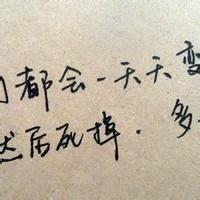 都会一天天变
然后死掉．多